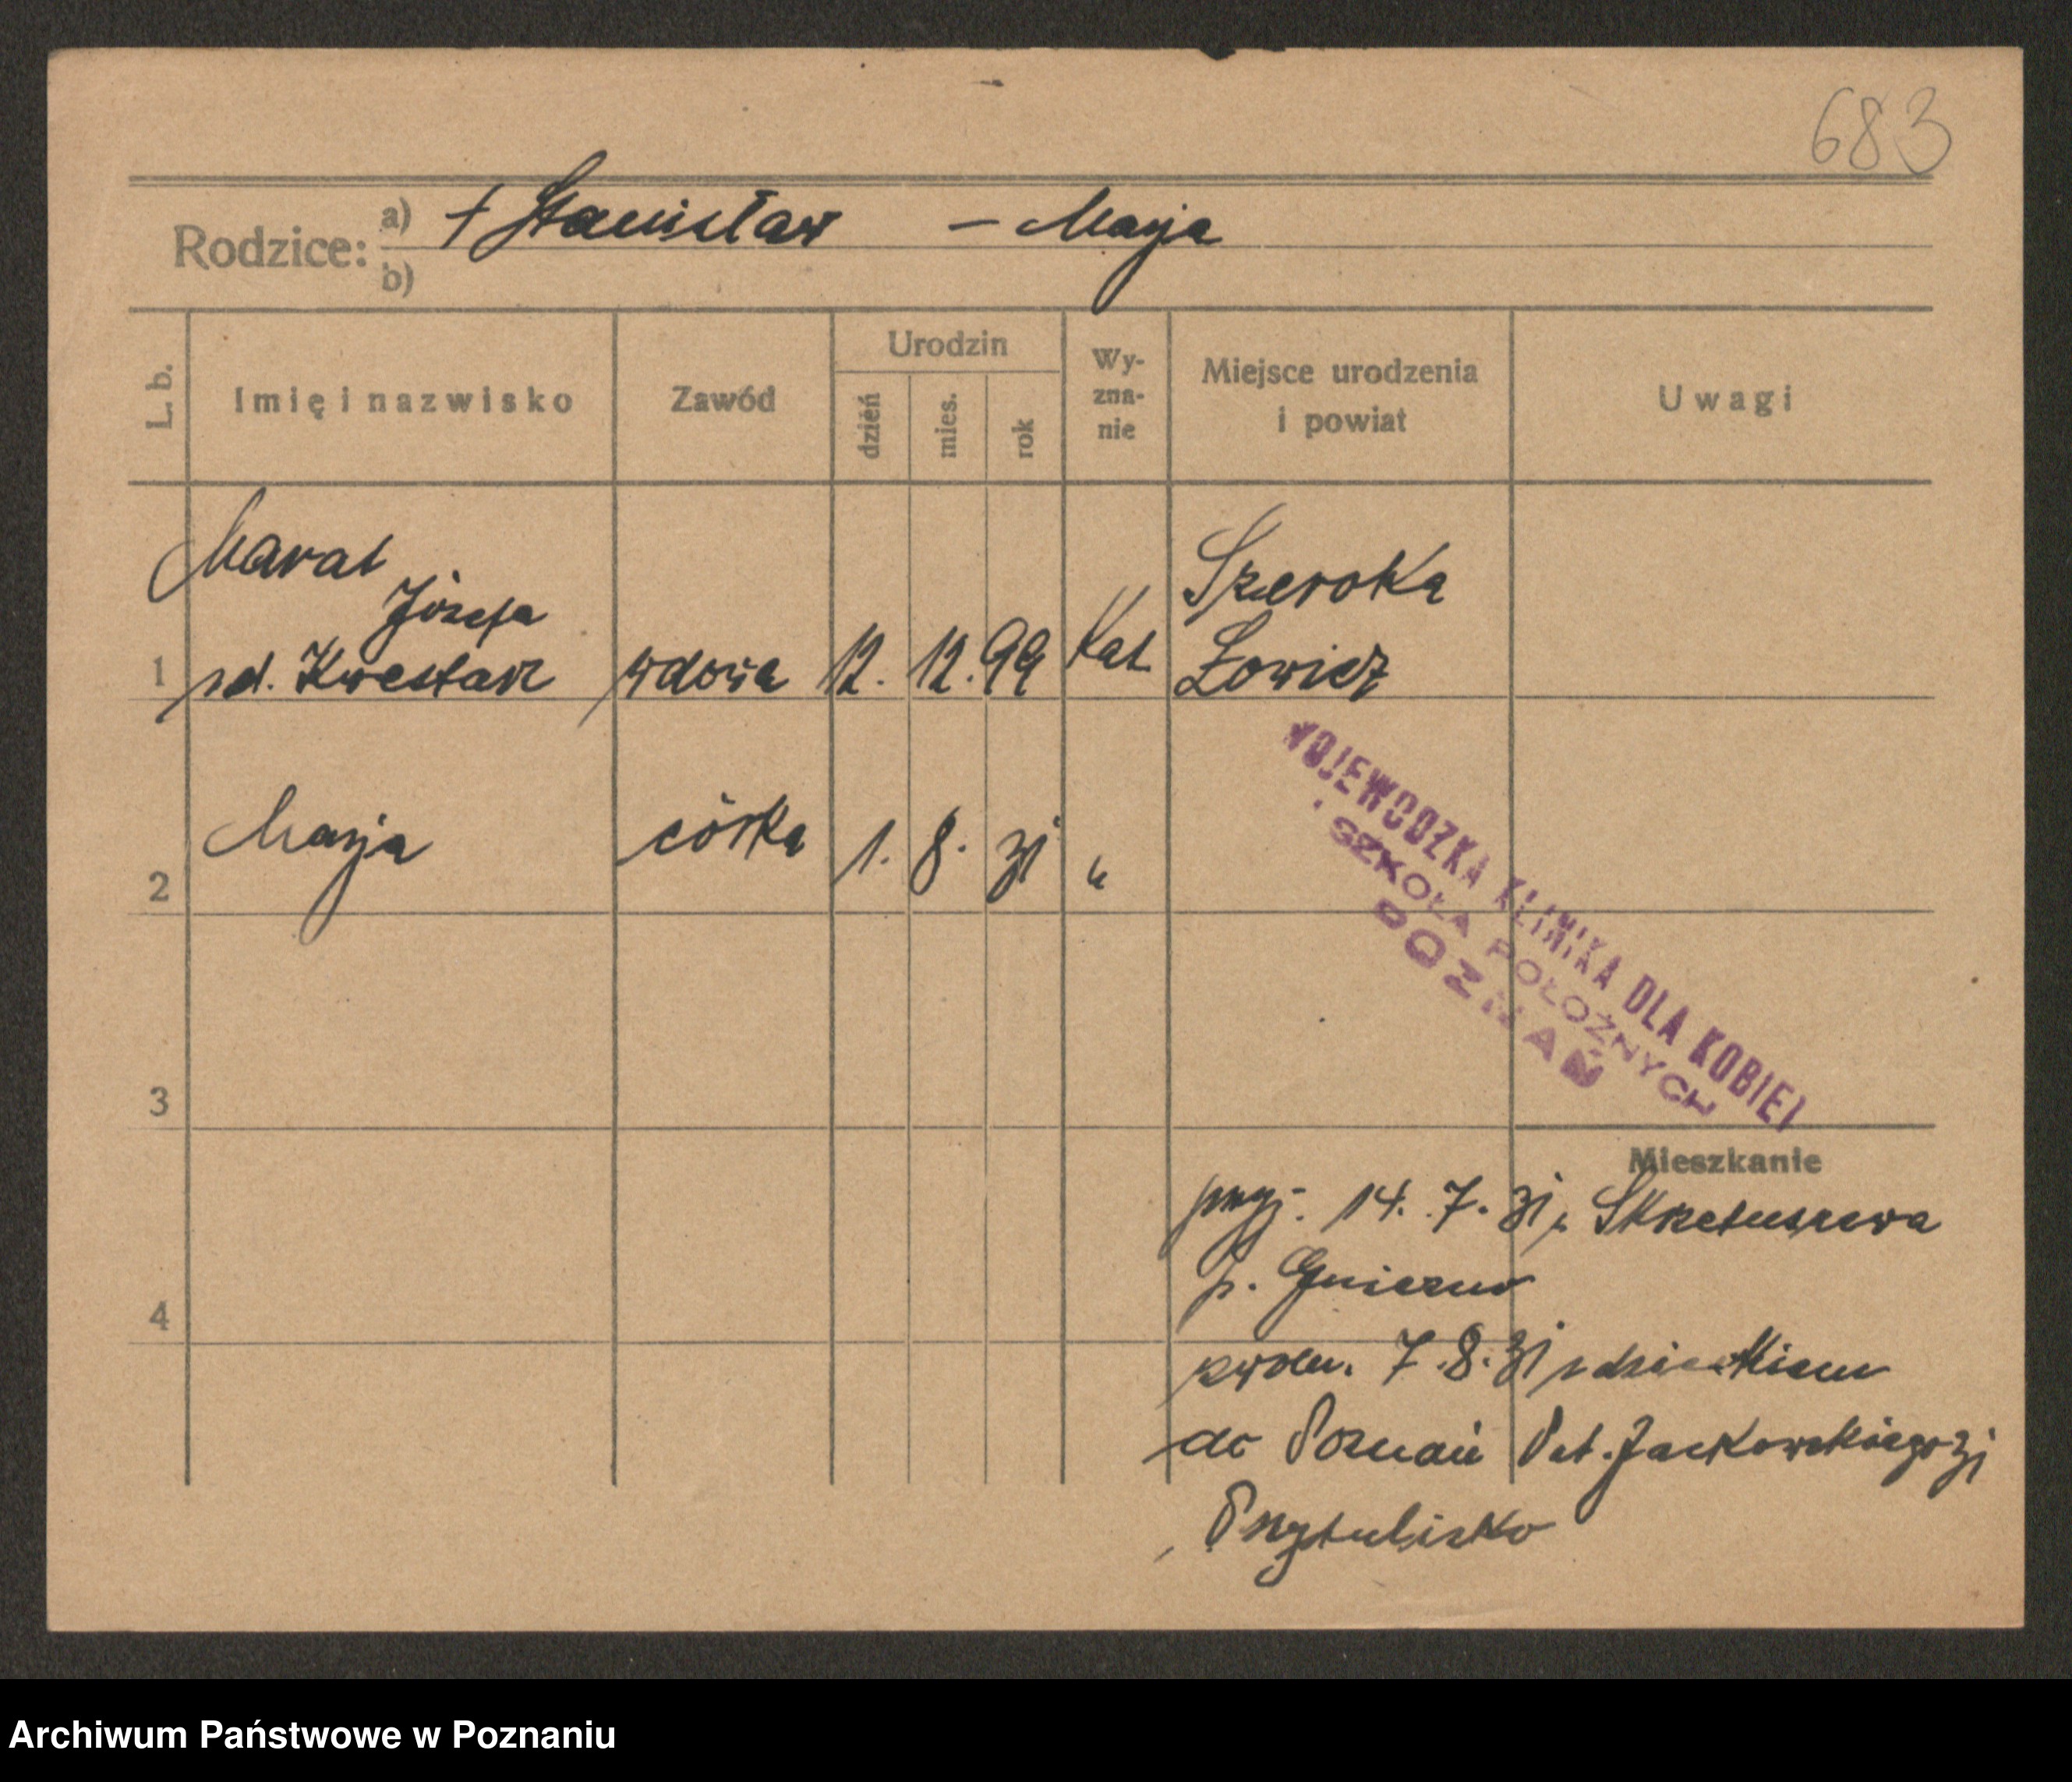 683
Rodzice: a) † Stanisław – Marja
b)
L. b.
Imię i nazwisko
Zawód
Urodzin
dzień
mies.
rok
Wy-
zna-
nie
Miejsce urodzenia
i powiat
Uwagi
Marat
Józefa
1 zd. Kwestarz wdowa 12. 12. 99 Kat
Szeroka
Łowicz
2 Marja córka 1. 8. 31 "
WOJEWODZKA KLINIKA DLA KOBIET
I SZKOŁA POŁOŻNYCH
POZNAŃ
3
4
Mieszkanie
przyj. 14. 7. 31 z Skrzetuszewa
p. Gniezno
zwoln. 7.8.31 z dzieckiem
do Poznań Pat. Jackowskiego 31
Przytulisko
Archiwum Państwowe w Poznaniu